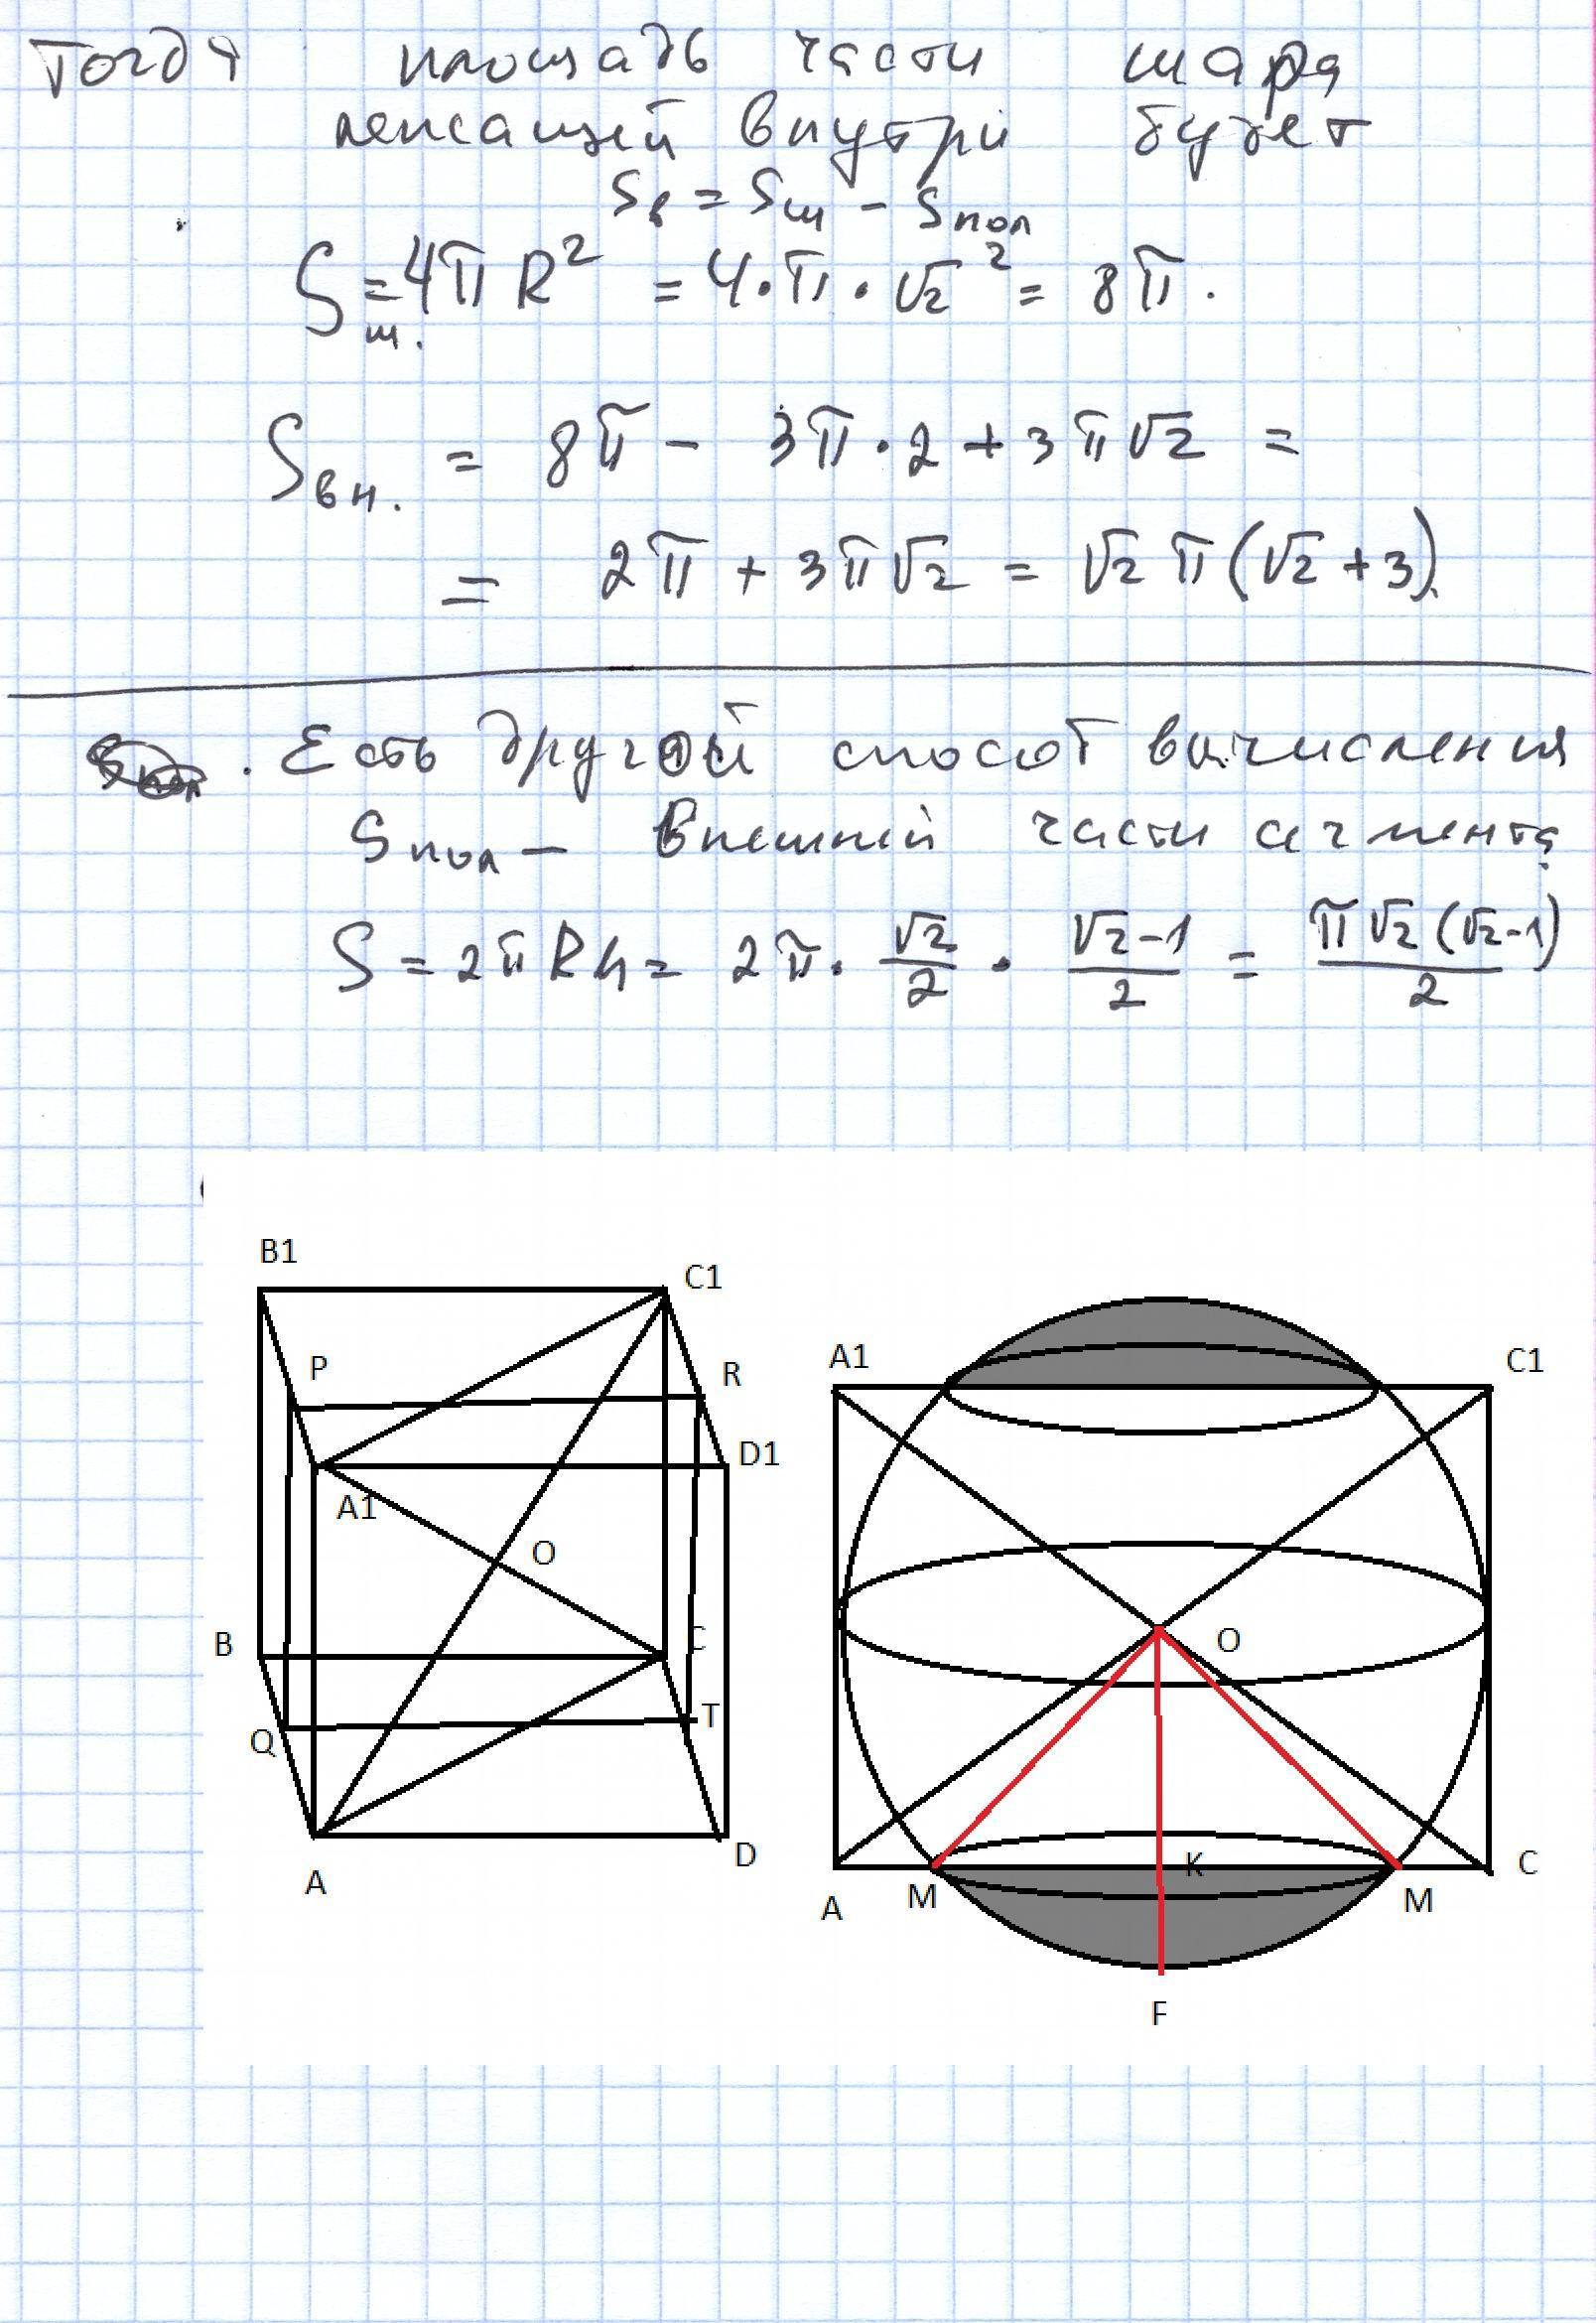 Тогда площадь части шара
лежащей внутри будет
Sв = Sш - Sпол
Sш. = 4πR² = 4·π·√2² = 8π.
Sвн. = 8π - 3π·2 + 3π√2 =
= 2π + 3π√2 = √2 π(√2 + 3).
. Есть другой способ вычисления
Sпол — внешней части сегмента.
S = 2πRh = 2π · √2/2 · (√2-1)/2 = π√2(√2-1)/2
B1
C1
P
R
A1
D1
O
B
C
Q
T
A
D
A1
C1
O
A
M
K
M
C
F